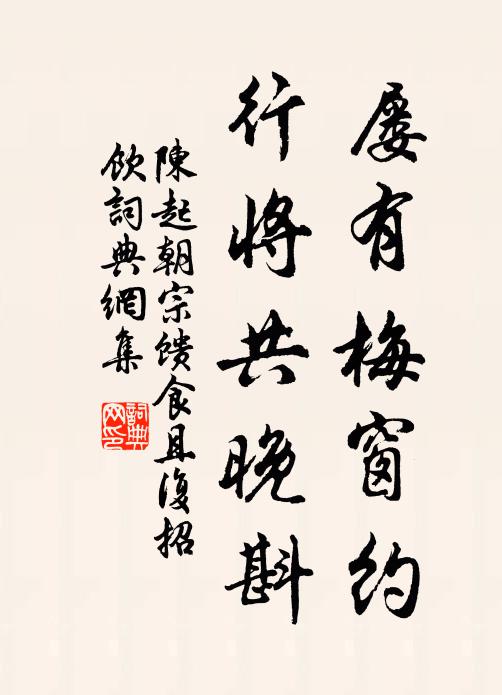 屢有梅窗約
行將共晚斟
陳起朝宗馈食且復招
飲詞典網集
詞典
网印